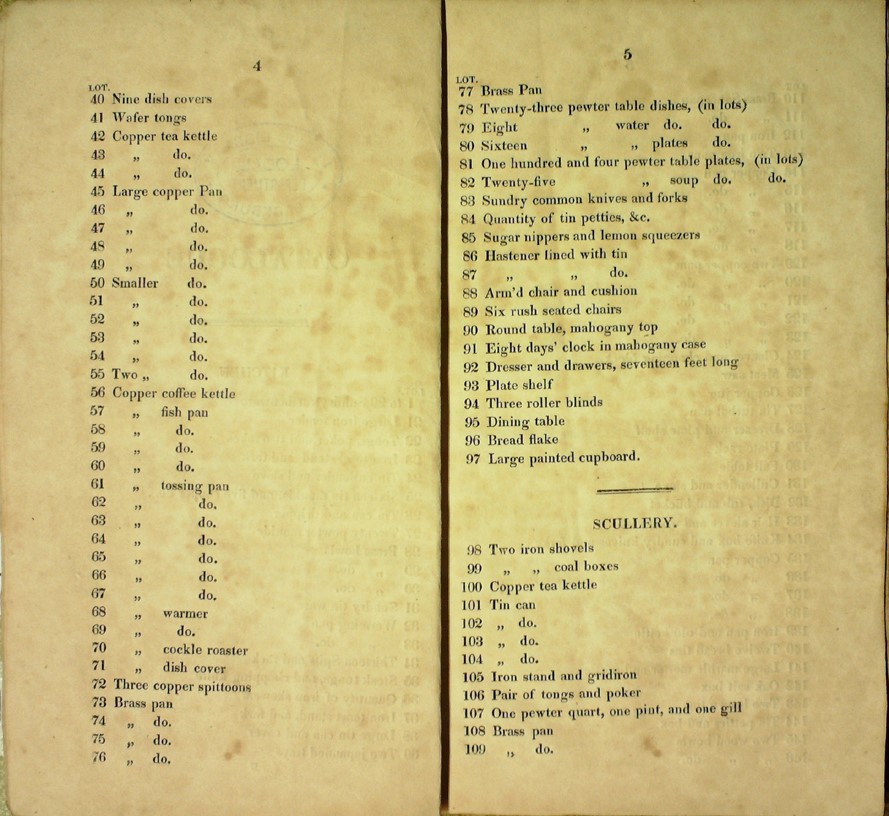 4
LOT.
40 Nine dish covers
41 Wafer tongs
42 Copper tea kettle
43 „ do.
44 „ do.
45 Large copper Pan
46 „ do.
47 „ do.
48 „ do.
49 „ do.
50 Smaller do.
51 „ do.
52 „ do.
53 „ do.
54 „ do.
55 Two „ do.
56 Copper coffee kettle
57 „ fish pan
58 „ do.
59 „ do.
60 „ do.
61 „ tossing pan
62 „ do.
63 „ do.
64 „ do.
65 „ do.
66 „ do.
67 „ do.
68 „ warmer
69 „ do.
70 „ cockle roaster
71 „ dish cover
72 Three copper spittoons
73 Brass pan
74 „ do.
75 „ do.
76 „ do.
5
LOT.
77 Brass Pan
78 Twenty-three pewter table dishes, (in lots)
79 Eight „ water do. do.
80 Sixteen „ „ plates do.
81 One hundred and four pewter table plates, (in lots)
82 Twenty-five „ soup do. do.
83 Sundry common knives and forks
84 Quantity of tin petties, &c.
85 Sugar nippers and lemon squeezers
86 Hastener lined with tin
87 „ „ do.
88 Arm'd chair and cushion
89 Six rush seated chairs
90 Round table, mahogany top
91 Eight days' clock in mahogany case
92 Dresser and drawers, seventeen feet long
93 Plate shelf
94 Three roller blinds
95 Dining table
96 Bread flake
97 Large painted cupboard.
SCULLERY.
98 Two iron shovels
99 „ „ coal boxes
100 Copper tea kettle
101 Tin can
102 „ do.
103 „ do.
104 „ do.
105 Iron stand and gridiron
106 Pair of tongs and poker
107 One pewter quart, one pint, and one gill
108 Brass pan
109 „ do.